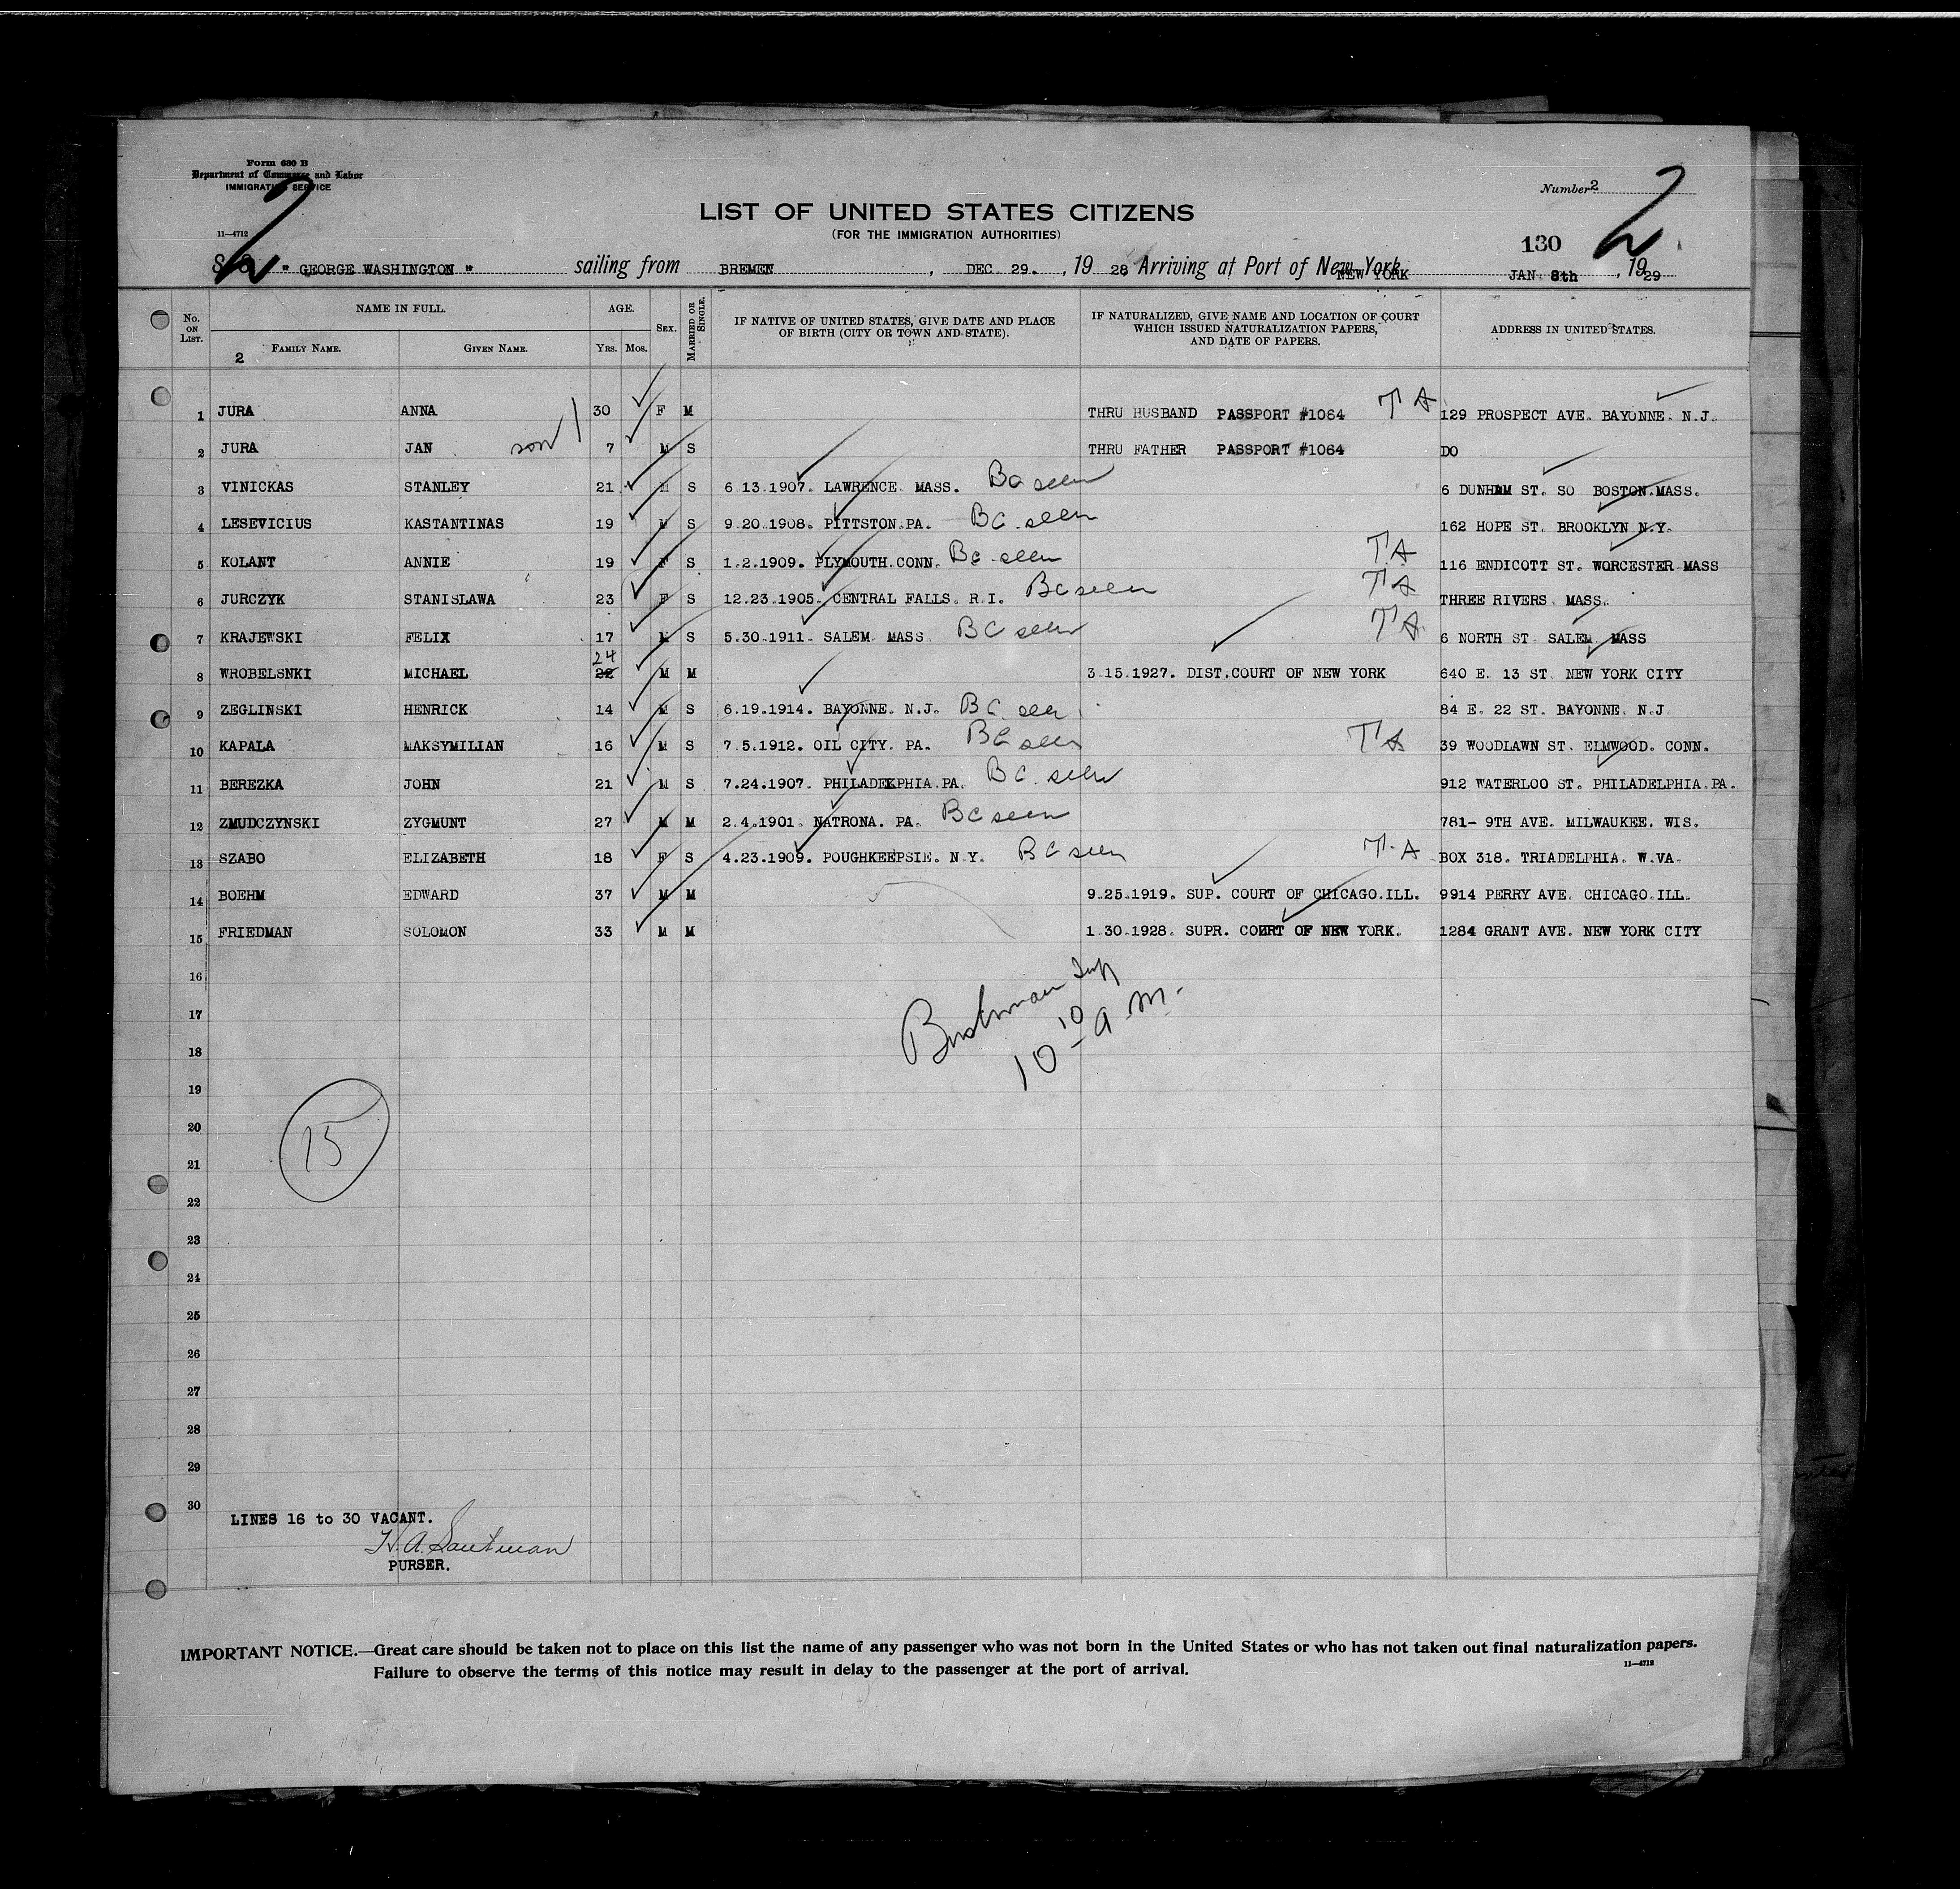 Form 630 B
Department of Commerce and Labor
IMMIGRATION SERVICE
11—4712
2
Number 2
2
LIST OF UNITED STATES CITIZENS
(FOR THE IMMIGRATION AUTHORITIES)
130
S. S. " GEORGE WASHINGTON " sailing from BREMEN, DEC. 29., 19 28 Arriving at Port of New York NEW YORK JAN. 8th, 19 29
No. ON LIST. NAME IN FULL. AGE. SEX. MARRIED OR SINGLE. IF NATIVE OF UNITED STATES, GIVE DATE AND PLACE OF BIRTH (CITY OR TOWN AND STATE). IF NATURALIZED, GIVE NAME AND LOCATION OF COURT WHICH ISSUED NATURALIZATION PAPERS, AND DATE OF PAPERS. ADDRESS IN UNITED STATES.
2 FAMILY NAME. GIVEN NAME. YRS. MOS.
1 JURA ANNA 30 F M THRU HUSBAND PASSPORT #1064 TA 129 PROSPECT AVE. BAYONNE. N.J.
2 JURA JAN son 7 M S THRU FATHER PASSPORT #1064 DO
3 VINICKAS STANLEY 21 M S 6 13.1907. LAWRENCE MASS. BC seen 6 DUNHAM ST. SO BOSTON.MASS.
4 LESEVICIUS KASTANTINAS 19 M S 9.20.1908. PITTSTON.PA. BC seen 162 HOPE ST. BROOKLYN N.Y.
5 KOLANT ANNIE 19 F S 1.2.1909. PLYMOUTH.CONN. BC seen TA 116 ENDICOTT ST. WORCESTER MASS
6 JURCZYK STANISLAWA 23 F S 12.23.1905. CENTRAL FALLS. R.I. BC seen TA THREE RIVERS. MASS.
7 KRAJEWSKI FELIX 17 M S 5.30.1911. SALEM MASS BC seen TA 6 NORTH ST SALEM MASS
8 WROBELSNKI MICHAEL 24 22 M M 3.15.1927. DIST.COURT OF NEW YORK 640 E. 13 ST NEW YORK CITY
9 ZEGLINSKI HENRICK 14 M S 6.19.1914. BAYONNE. N.J. BC seen 84 E. 22 ST. BAYONNE. N.J
10 KAPALA MAKSYMILIAN 16 M S 7.5.1912. OIL CITY. PA. BC seen TA 39 WOODLAWN ST. ELMWOOD. CONN.
11 BEREZKA JOHN 21 M S 7.24.1907. PHILADELPHIA.PA. BC seen 912 WATERLOO ST. PHILADELPHIA.PA.
12 ZMUDCZYNSKI ZYGMUNT 27 M M 2.4.1901. NATRONA. PA. BC seen 781- 9TH AVE. MILWAUKEE. WIS.
13 SZABO ELIZABETH 18 F S 4.23.1909. POUGHKEEPSIE. N.Y. BC seen T.A BOX 318. TRIADELPHIA. W.VA.
14 BOEHM EDWARD 37 M M 9.25.1919. SUP. COURT OF CHICAGO.ILL. 9914 PERRY AVE. CHICAGO.ILL.
15 FRIEDMAN SOLOMON 33 M M 1.30.1928. SUPR. COURT OF NEW YORK. 1284 GRANT AVE. NEW YORK CITY
16
17
18
10 10 a.m.
19
20
15
21
22
23
24
25
26
27
28
29
30
LINES 16 to 30 VACANT.
PURSER.
IMPORTANT NOTICE.—Great care should be taken not to place on this list the name of any passenger who was not born in the United States or who has not taken out final naturalization papers.
Failure to observe the terms of this notice may result in delay to the passenger at the port of arrival.
11—4712